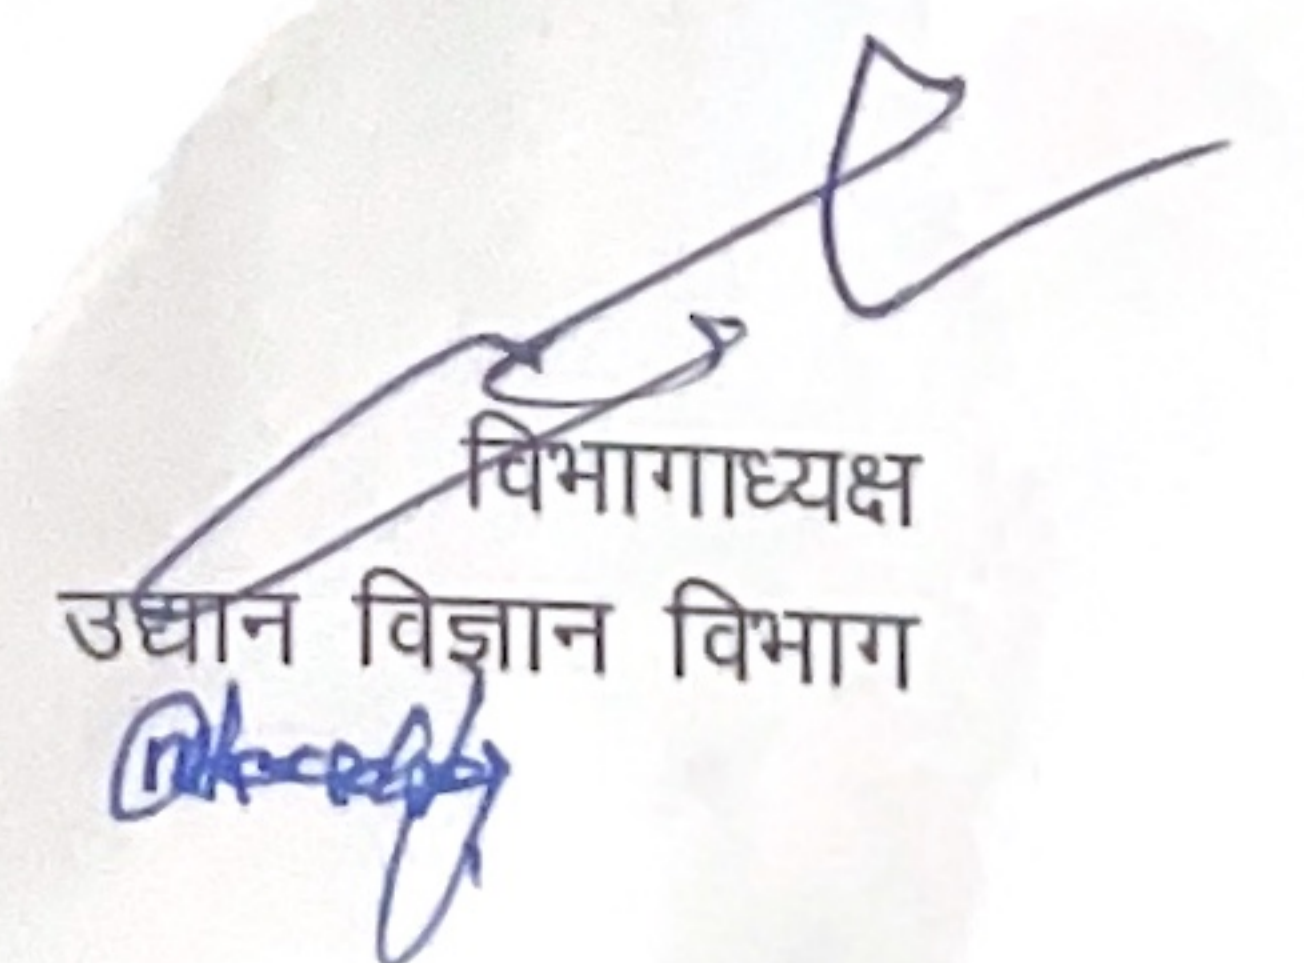 विभागाध्यक्ष
उद्यान विज्ञान विभाग